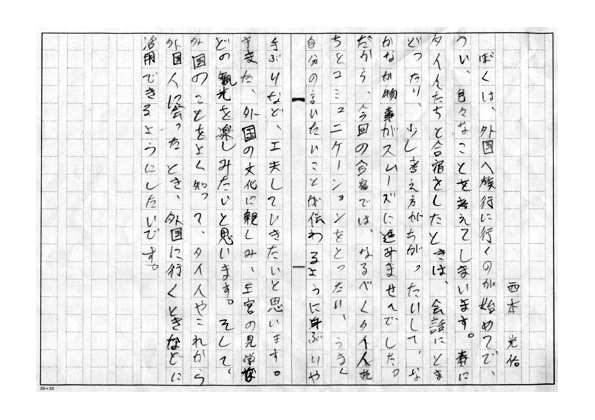 西本 光佑
ぼくは、外国へ旅行に行くのが始めてで、
つい、色々なことを考えてしまいます。春に
タイ人たちと合宿をしたときは、会話にとま
どったり、少し考え方がちがったりして、な
かなか物事がスムーズに進みませんでした。
だから、今回の合宿では、なるべくタイ人た
ちとコミュニケーションをとったり、うまく
自分の言いたいことが伝わるように身ぶりや
手ぶりなど、工夫していきたいと思います。
また、外国の文化に親しみ、王宮の見学な
どの観光を楽しみたいと思います。そして、
外国のことをよく知って、タイ人やこれから
外国人に会ったとき、外国に行くときなどに
活用できるようにしたいです。
20×20